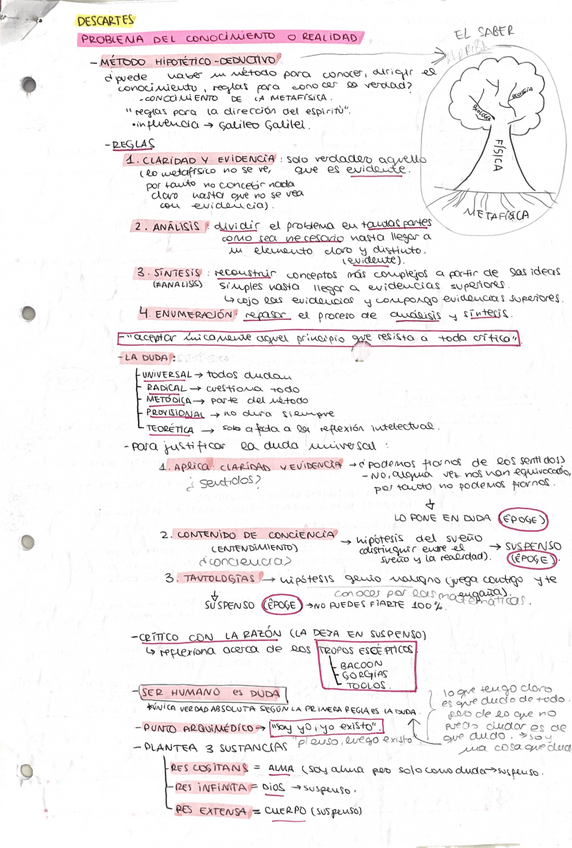 DESCARTES
EL SABER
PROBLEMA DEL CONOCIMIENTO O REALIDAD
- MÉTODO HIPOTÉTICO-DEDUCTIVO
¿puede haber un método para conocer, dirigir el
conocimiento, reglas para conocer la verdad?
- CONOCIMIENTO DE LA METAFÍSICA.
"reglas para la dirección del espíritu".
• influencia → Galileo Galilei.
FÍSICA
METAFÍSICA
- REGLAS
1. CLARIDAD Y EVIDENCIA: solo verdadero aquello
(lo metafísico no se ve, que es evidente.
por tanto no concebir nada
claro hasta que no se vea
con evidencia).
2. ANÁLISIS: dividir el problema en tantas partes
como sea necesario hasta llegar a
un elemento claro y distinto.
(evidente).
3. SÍNTESIS: reconstruir conceptos más complejos a partir de las ideas
(≠ANÁLISIS) simples hasta llegar a evidencias superiores.
↳ cojo las evidencias y compongo evidencias superiores.
4. ENUMERACIÓN: repasar el proceso de análisis y síntesis.
- "aceptar únicamente aquel principio que resista a toda crítica"
- LA DUDA:
UNIVERSAL → todos dudan
RADICAL → cuestiona todo
METÓDICA → parte del método
PROVISIONAL → no dura siempre
TEORÉTICA → solo afecta a la reflexión intelectual.
- Para justificar la duda universal:
1. Aplica: CLARIDAD Y EVIDENCIA → ¿Podemos fiarnos de los sentidos?
¿sentidos? - NO, alguna vez nos han equivocado,
por tanto no podemos fiarnos.
LO PONE EN DUDA (ÉPOGE)
2. CONTENIDO DE CONCIENCIA → hipótesis del sueño → SUSPENSO
(ENTENDIMIENTO) (distinguir entre el (ÉPOGE)
¿conciencia? sueño y la realidad).
3. TAUTOLOGÍAS → hipótesis genio maligno (juega contigo y te
engaña).
conoces por las matemáticas.
SUSPENSO (ÉPOGE) → NO PUEDES FIARTE 100%.
- CRÍTICO CON LA RAZÓN (LA DEJA EN SUSPENSO)
↳ reflexiona acerca de los TROPOS ESCÉPTICOS
BACOON
GORGIAS
TODLOS.
- SER HUMANO es DUDA
ÚNICA VERDAD ABSOLUTA SEGÚN LA PRIMERA REGLA ES LA DUDA.
lo que tengo claro
es que dudo de todo.
pero de lo que no
puedo dudar es de
que dudo. → soy
una cosa que duda
- PUNTO ARQUIMÉDICO → "soy yo, yo existo".
"pienso, luego existo
- PLANTEA 3 SUSTANCIAS
RES COGITANS = ALMA (soy alma pero solo como duda → suspenso.
RES INFINITA = DIOS → suspenso.
RES EXTENSA = CUERPO (suspenso)